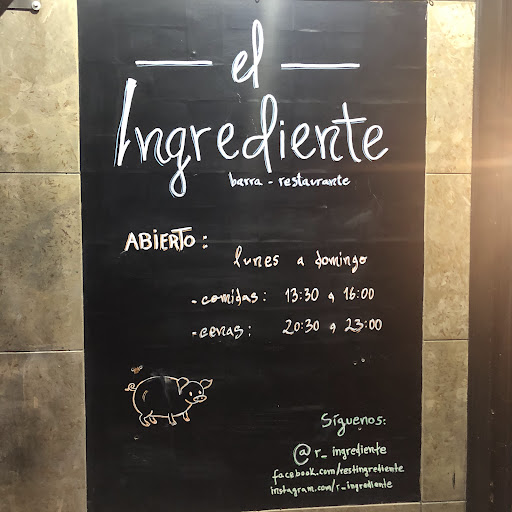 el
Ingrediente
barra - restaurante
ABIERTO:
lunes a domingo
- comidas: 13:30 a 16:00
- cenas: 20:30 a 23:00
Síguenos:
@r_ingrediente
facebook.com/restingrediente
instagram.com/r_ingrediente